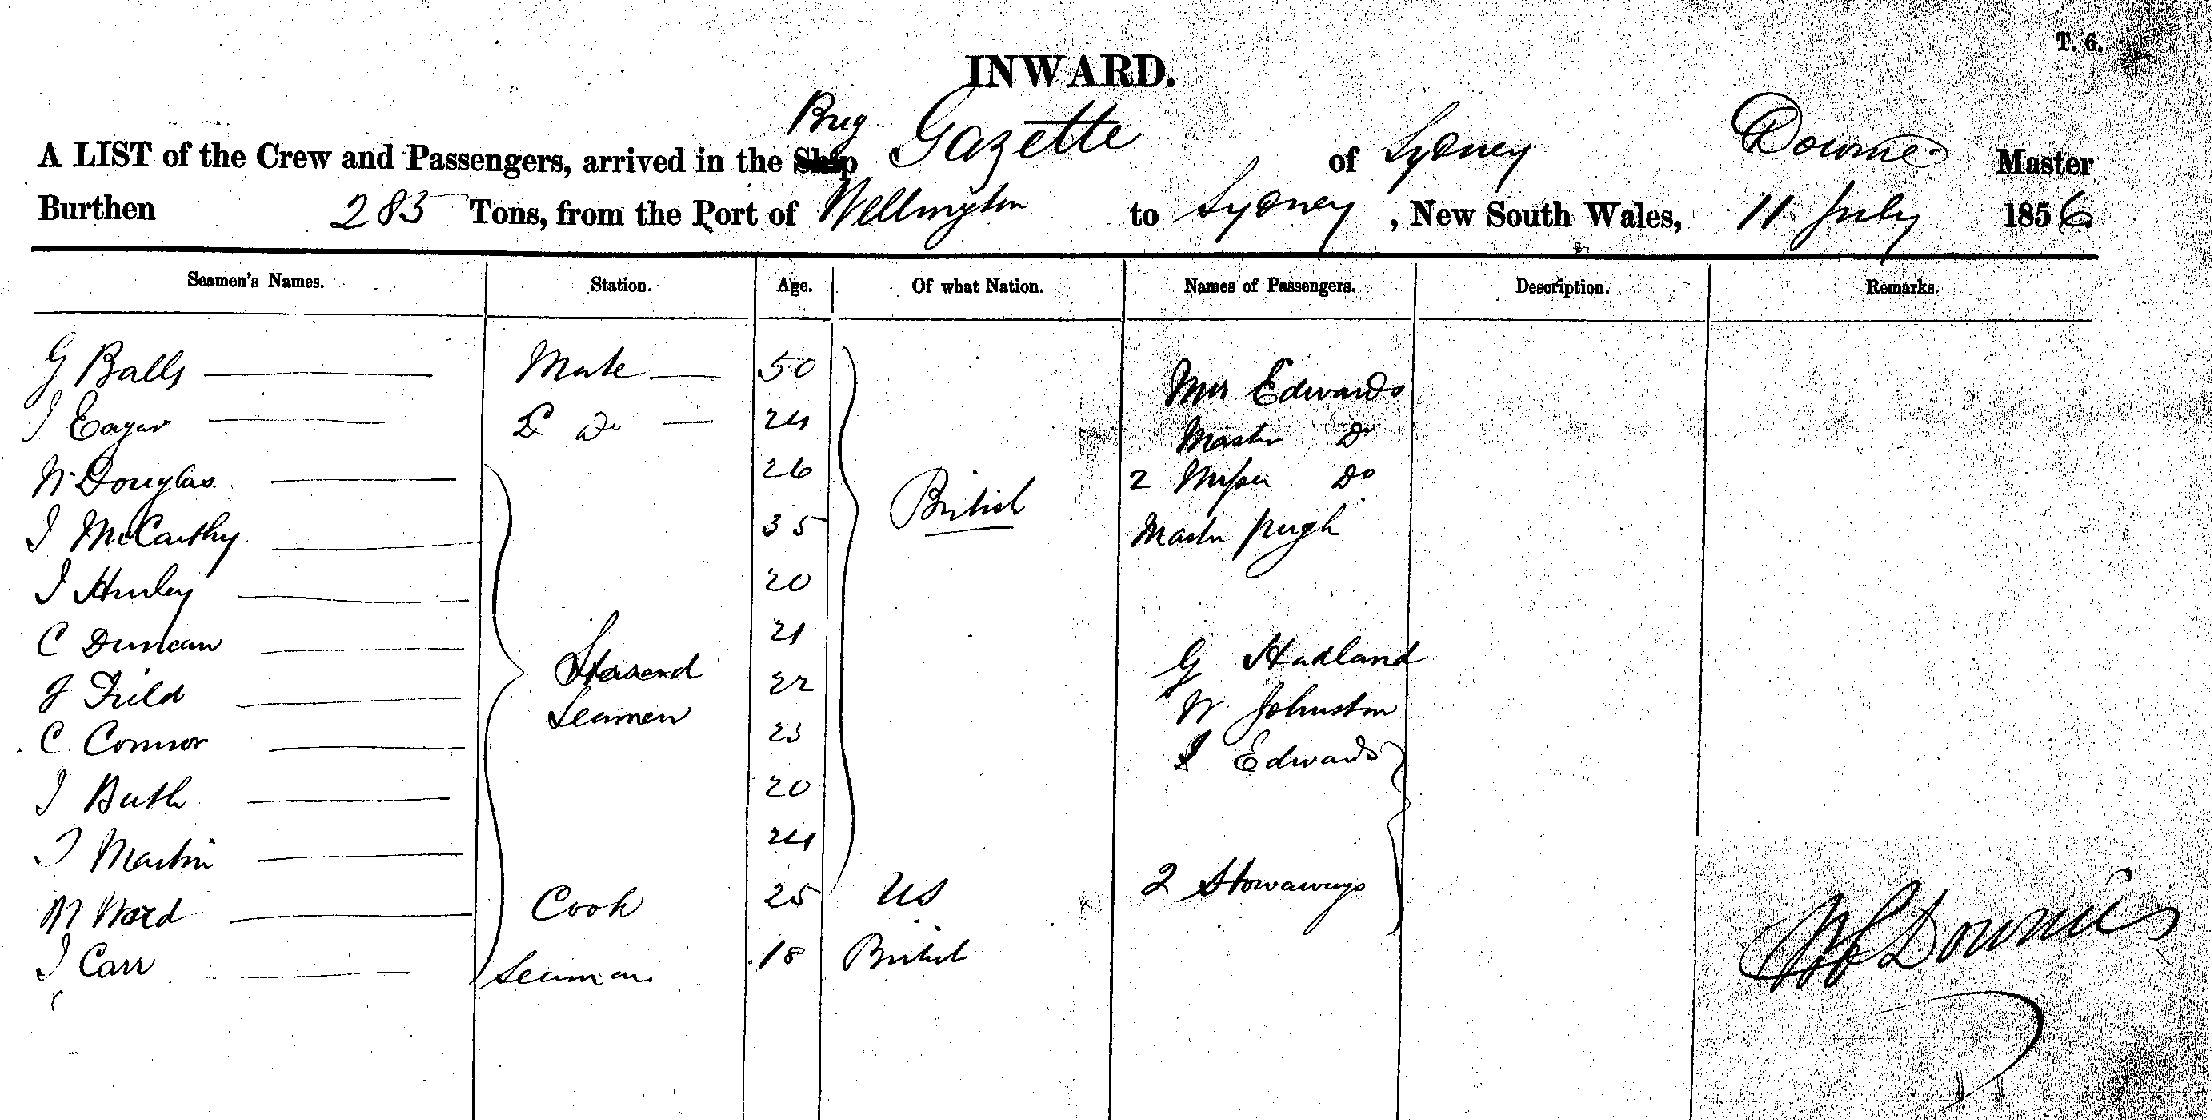 T. 6.
INWARD.
A LIST of the Crew and Passengers, arrived in the Ship Brig Gazette of Sydney Downie Master
Burthen 283 Tons, from the Port of Wellington to Sydney, New South Wales, 11 July 1856
Seamen's Names. Station. Age. Of what Nation. Names of Passengers. Description. Remarks.
G Balls Mate 50 Mrs Edwards
J Eager 2 Do 24 Master Do
W Douglas 26 2 Misses Do
J McCarthy 35 British Master Pugh
J Hurley 20
C Duncan 21 G Hadland
J Field 22 W Johnston
Seamen
C Connor 23 J Edwards
J Buth 20
J Martin 24
W Ward Cook 25 US 2 Stowaways
J Carr Seaman 18 British
Downie